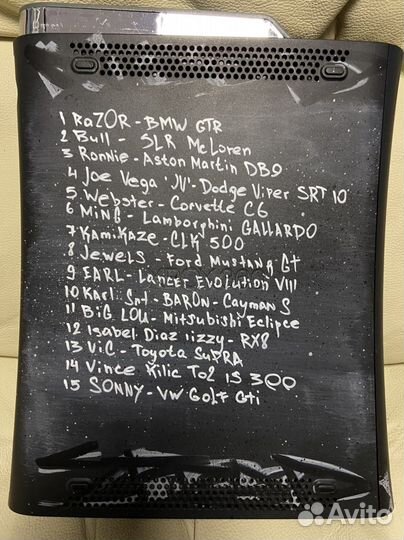 1 RaZOR - BMW GTR
2 Bull - SLR McLoren
3 Ronnie - Aston Martin DB9
4 Joe Vega 'JV' - Dodge Viper SRT 10
5 Webster - Corvette C6
6 MiNG - Lamborghini GALLARDO
7 KamiKaze - CLK 500
8 Jewels - Ford Mustang GT
9 EARL - Lancer Evolution VIII
10 Karl Smt - BARON - Cayman S
11 BiG LOU - Mitsubishi Eclipce
12 Isabel Diaz izzy - RX8
13 ViC - Toyota SuPRA
14 Vince Kilic To2 IS 300
15 SONNY - VW GOLF Gti
Avito